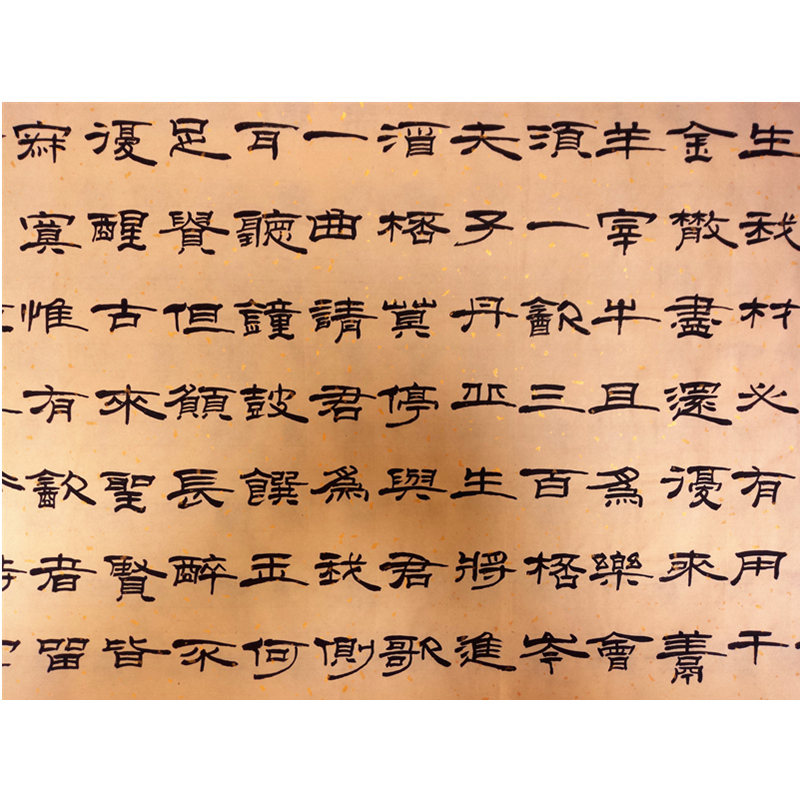 生我材必有用千
金散盡還復來羹
羊宰牛且爲樂會
須一飲三百桮岑
夫子丹丘生將進
酒桮莫停與君歌
一曲請君爲我側
耳聽鐘鼓饌玉何
足貴但願長醉不
復醒古來聖賢皆
寂寞惟有飲者留